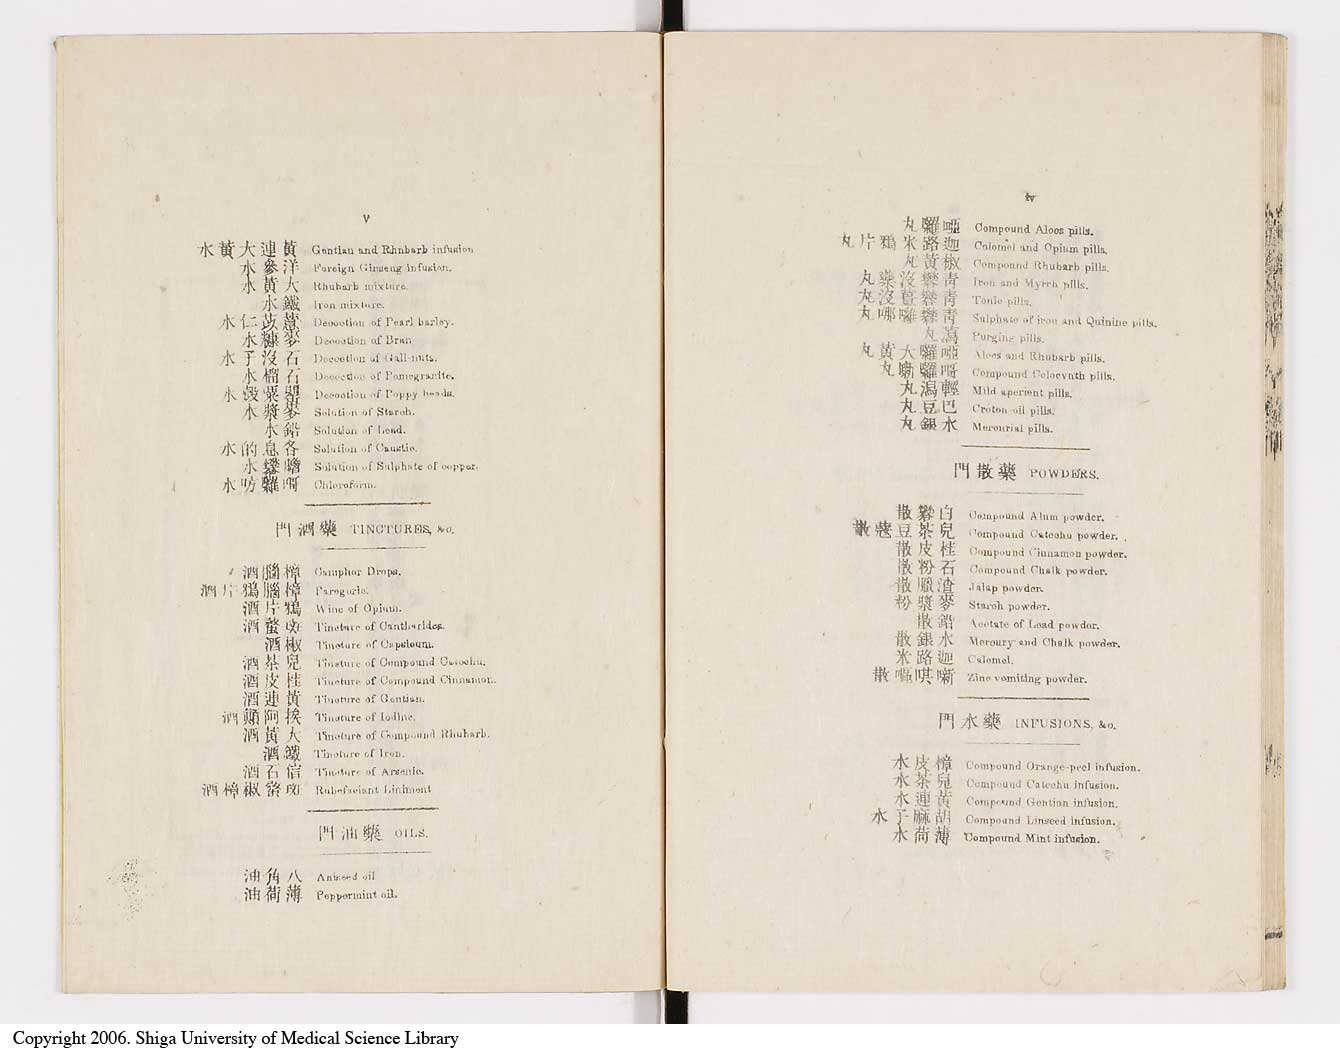 iv
啞囉丸 Compound Aloes pills.
迦路米鴉片丸 Calomel and Opium pills.
椒黃丸 Compound Rhubarb pills.
靑礬沒藥丸 Iron and Myrrh pills.
靑礬薑沒丸 Tonic pills.
靑礬囉哪丸 Sulphate of iron and Quinine pills.
瀉丸 Purging pills.
啞囉大黃丸 Aloes and Rhubarb pills.
呀囉嘶丸 Compound Colocynth pills.
輕瀉丸 Mild aperient pills.
巴豆丸 Croton oil pills.
水銀丸 Mercurial pills.
藥散門 POWDERS.
白礬散 Compound Alum powder.
兒茶豆蔻散 Compound Catechu powder.
桂皮散 Compound Cinnamon powder.
石粉散 Compound Chalk powder.
渣臘散 Jalap powder.
麥漿粉 Starch powder.
鉛散 Acetate of Lead powder.
水銀散 Mercury and Chalk powder.
迦路米 Calomel.
嘶唭嘔散 Zinc vomiting powder.
藥水門 INFUSIONS, &c.
樟皮水 Compound Orange-peel infusion.
兒茶水 Compound Catechu infusion.
黃連水 Compound Gentian infusion.
胡麻子水 Compound Linseed infusion.
薄荷水 Compound Mint infusion.
v
黃連大黃水 Gentian and Rhubarb infusion
洋參水 Foreign Ginseng infusion.
大黃水 Rhubarb mixture.
鐵水 Iron mixture.
薏苡仁水 Decoction of Pearl barley.
麥糠水 Decoction of Bran
石沒子水 Decoction of Gall-nuts.
石榴水 Decoction of Pomegranite.
罌粟殼水 Decoction of Poppy heads.
麥漿水 Solution of Starch.
鉛水 Solution of Lead.
各息的水 Solution of Caustic.
膽礬水 Solution of Sulphate of copper.
呀囉方水 Chloroform.
藥酒門 TINCTURES, &c.
樟腦酒 Camphor Drops.
樟腦鴉片酒 Paregoric.
鴉片酒 Wine of Opium.
斑蝥酒 Tincture of Cantharides.
椒酒 Tincture of Capsicum.
兒茶酒 Tincture of Compound Catechu.
桂皮酒 Tincture of Compound Cinnamon.
黃連酒 Tincture of Gentian.
挨阿顛酒 Tincture of Iodine.
大黃酒 Tincture of Compound Rhubarb.
鐵酒 Tincture of Iron.
信石酒 Tincture of Arsenic.
斑蝥椒樟酒 Rubefaciant Liniment
藥油門 OILS.
八角油 Aniseed oil
薄荷油 Peppermint oil.
Copyright 2006. Shiga University of Medical Science Library